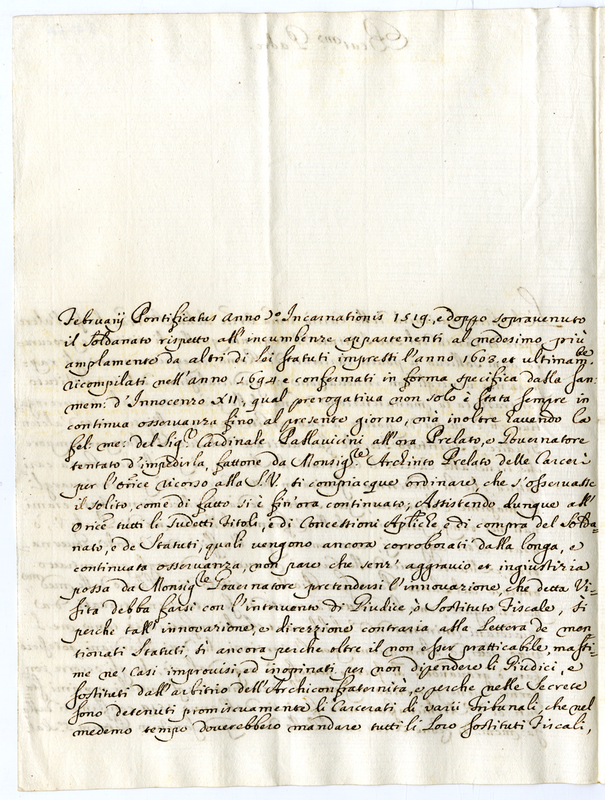 Februarij Pontificatus anno 7.º Incarnationis 1519., e doppo sopravenuto
il Soldanato rispetto all'incumbenze appartenenti al medesimo più
amplamento da altri di loi Statuti impressi l'anno 1603. et ultimam.te
ricompilati nell'anno 1694 e confermati in forma specifica dalla San:
mem: d'Innocenzo XII, qual prerogativa non solo è stata sempre in
continua osservanza fino al presente giorno, mà inoltre havendo la
fel: me: del Sig.r Cardinale Pallavicini all'ora Prelato, e Governatore
tentato d'impedirla, fattone da Monsig.re Archinto Prelato delle Carceri
per l'Orrice ricorso alla S.V., si compiacque ordinare, che s'osservasse
il solito, come di fatto si è fin'ora continuato; Assistendo dunque all'
Orrice tutti li sudetti Titoli, e di Concessioni Apliche e di compra del Solda-
nato, e de Statuti, quali vengono ancora corroborati dalla longa, e
continuata osservanza, non pare che senz'aggravio et ingiustizia
possa da Monsig.re Governatore pretendersi l'innovazione, che detta Vi-
sita debba farsi con l'intervento di Giudice, ò Sostituto Fiscale, sì
perche tall'innovazione, e direzzione contraria alla Lettera de men-
tionati Statuti, sì ancora perche oltre il non esser pratticabile, massi-
me ne' Casi improvisi, ed inopinati per non dipendere li Giudici, e
sostituti dall'arbitrio dell'Archiconfraternità, e perche nelle Secrete
sono detenuti promiscuamente li Carcerati di varii Tribunali, che nel
medemo tempo doverebbero mandare tutti li Loro Sostituti Fiscali,